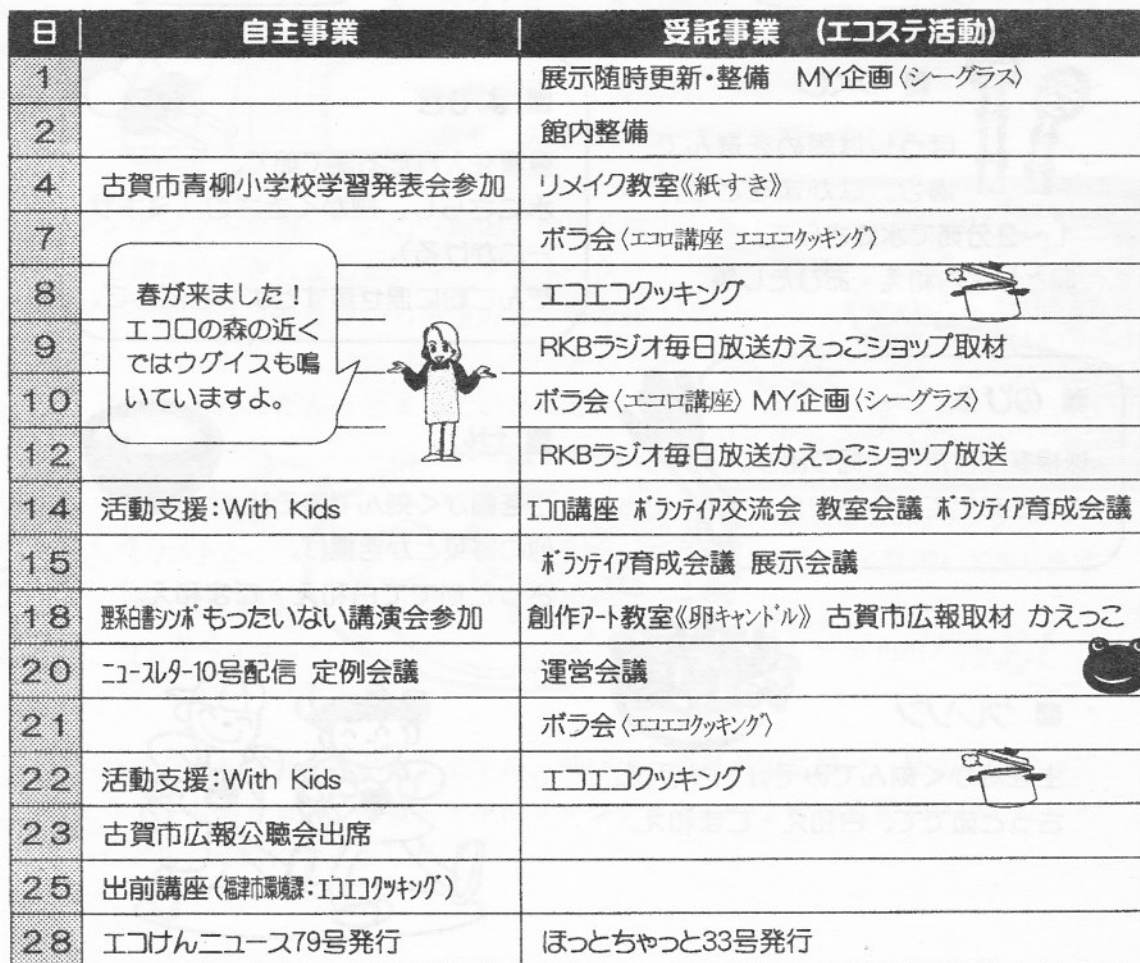 日 自主事業 受託事業 (エコステ活動)
1 展示随時更新・整備 MY企画〈シーグラス〉
2 館内整備
4 古賀市青柳小学校学習発表会参加 リメイク教室《紙すき》
7 ボラ会〈エコロ講座 エコエコクッキング〉
8 エコエコクッキング
春が来ました！
エコロの森の近く
ではウグイスも鳴
いていますよ。
9 RKBラジオ毎日放送かえっこショップ取材
10 ボラ会〈エコロ講座〉 MY企画〈シーグラス〉
12 RKBラジオ毎日放送かえっこショップ放送
14 活動支援：With Kids エコロ講座 ボランティア交流会 教室会議 ボランティア育成会議
15 ボランティア育成会議 展示会議
18 理系白書シンポ もったいない講演会参加 創作アート教室《卵キャンドル》 古賀市広報取材 かえっこ
20 ニュースレター10号配信 定例会議 運営会議
21 ボラ会〈エコエコクッキング〉
22 活動支援：With Kids エコエコクッキング
23 古賀市広報公聴会出席
25 出前講座(福津市環境課：エコエコクッキング)
28 エコけんニュース79号発行 ほっとちゃっと33号発行